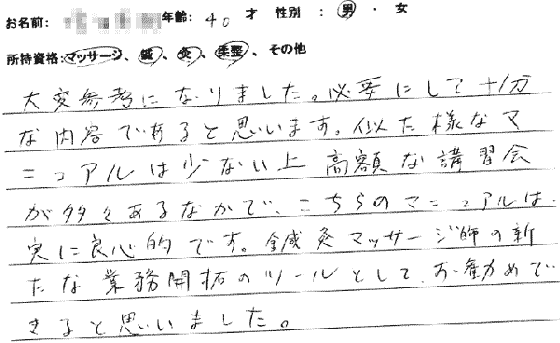 お名前: 年齢: 40 才 性別 : 男 ・ 女
所持資格:マッサージ、鍼、灸、柔整、その他
大変参考になりました。必要にして十分
な内容であると思います。似た様なマ
ニュアルは少ない上 高額な講習会
が多々あるなかで、こちらのマニュアルは
実に良心的です。鍼灸マッサージ師の新
たな業務開拓のツールとして お勧めで
きると思いました。